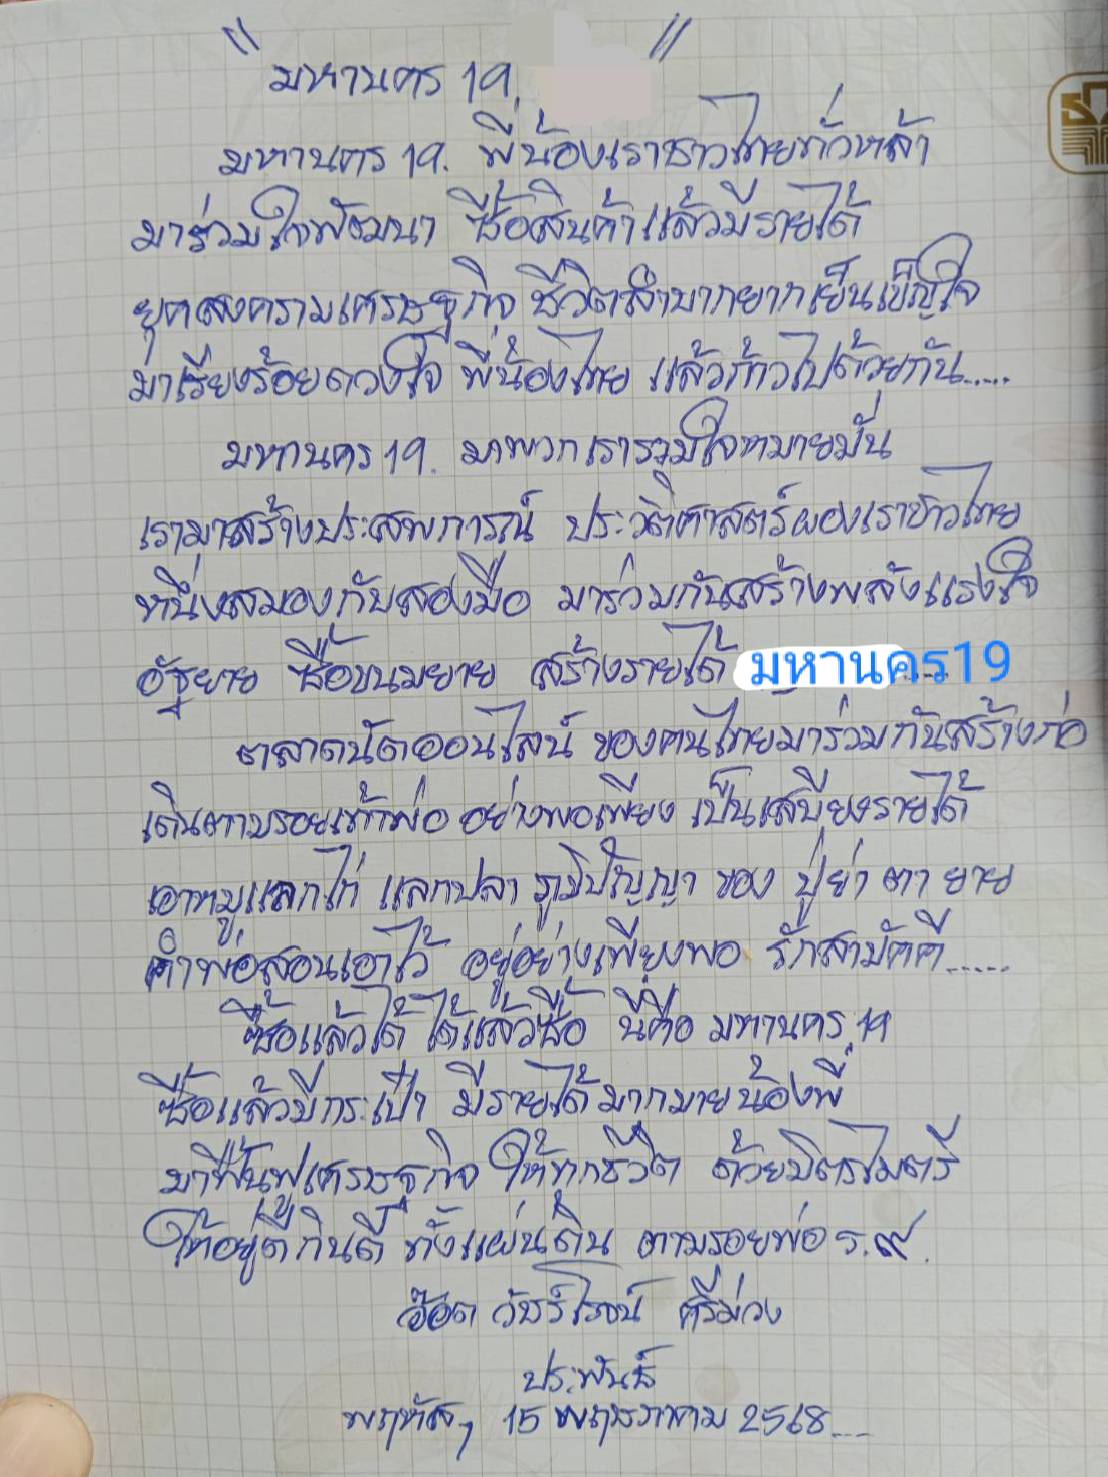 " มหานคร 19. "
มหานคร 19. พี่น้องเราชาวไทยทั่วหล้า
มาร่วมใจพัฒนา ซื้อสินค้าแล้วมีรายได้
ยุคสงครามเศรษฐกิจ ชีวิตลำบากยากเย็นเข็ญใจ
มาเรียงร้อยดวงใจ พี่น้องไทย แล้วก้าวไปด้วยกัน.....
มหานคร 19. มาพวกเรารวมใจหมายมั่น
เรามาสร้างประสพการณ์ ประวัติศาสตร์ของเราชาวไทย
หนึ่งสมองกับสองมือ มาร่วมกันสร้างพลังแรงใจ
อัฐยาย ซื้อขนมยาย สร้างรายได้ มหานคร19
ตลาดนัดออนไลน์ ของคนไทยมาร่วมกันสร้างก่อ
เดินตามรอยเท้าพ่อ อย่างพอเพียง เป็นเสบียงรายได้
เอาหมูแลกไก่ แลกปลา ภูมิปัญญา ของ ปู่ย่า ตา ยาย
คำพ่อสอนเอาไว้ อยู่อย่างเพียงพอ รักสามัคคี.....
ซื้อแล้วได้ ได้แล้วซื้อ นี่คือ มหานคร.19
ซื้อแล้วมีกระเป๋า มีรายได้มากมายน้องพี่
มาฟื้นฟูเศรษฐกิจ ให้ทุกชีวิต ด้วยมิตรไมตรี
ให้อยู่ดีกินดี ทั้งแผ่นดิน ตามรอยพ่อ ร.๙.
อ๊อด วัชร์โรจน์ ศรีม่วง
ประพันธ์
พฤหัสฯ 15 พฤษภาคม 2568....